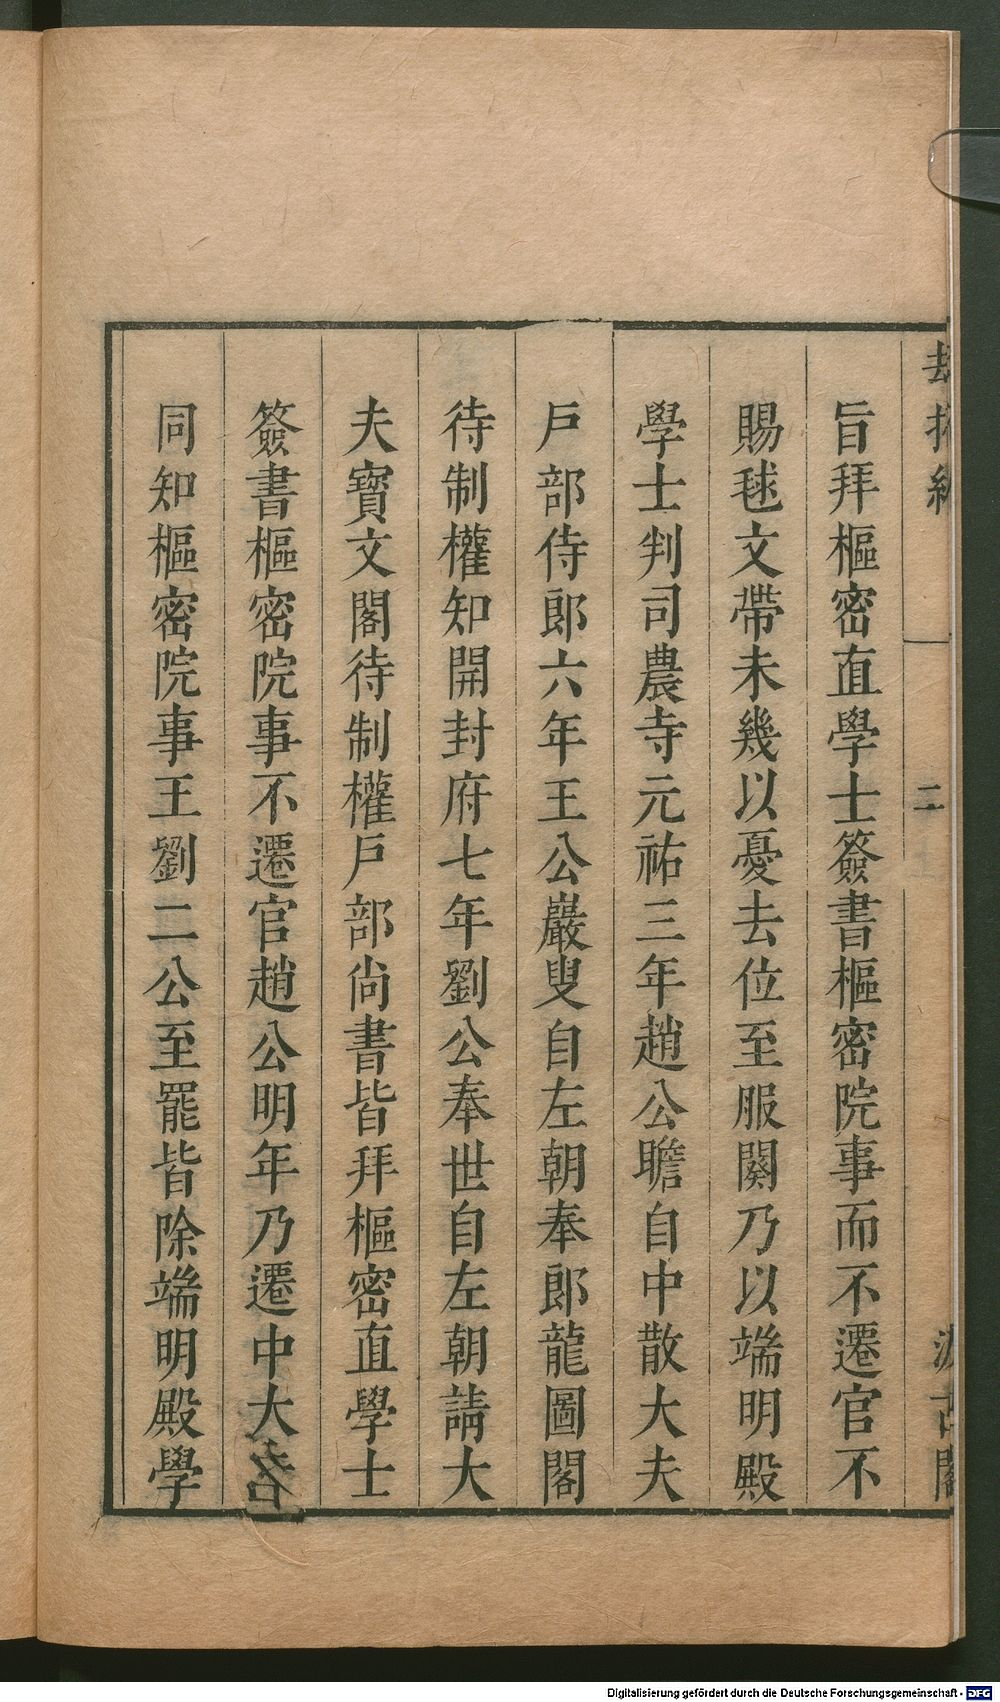 旨拜樞密直學士簽書樞密院事而不遷官不
賜毬文帶未幾以憂去位至服闋乃以端明殿
學士判司農寺元祐三年趙公瞻自中散大夫
戶部侍郎六年王公巖叟自左朝奉郎龍圖閣
待制權知開封府七年劉公奉世自左朝請大
夫寶文閣待制權戶部尚書皆拜樞密直學士
簽書樞密院事不遷官趙公明年乃遷中大
同知樞密院事王劉二公至罷皆除端明殿學
二
古閣
Digitalisierung gefördert durch die Deutsche Forschungsgemeinschaft - DFG